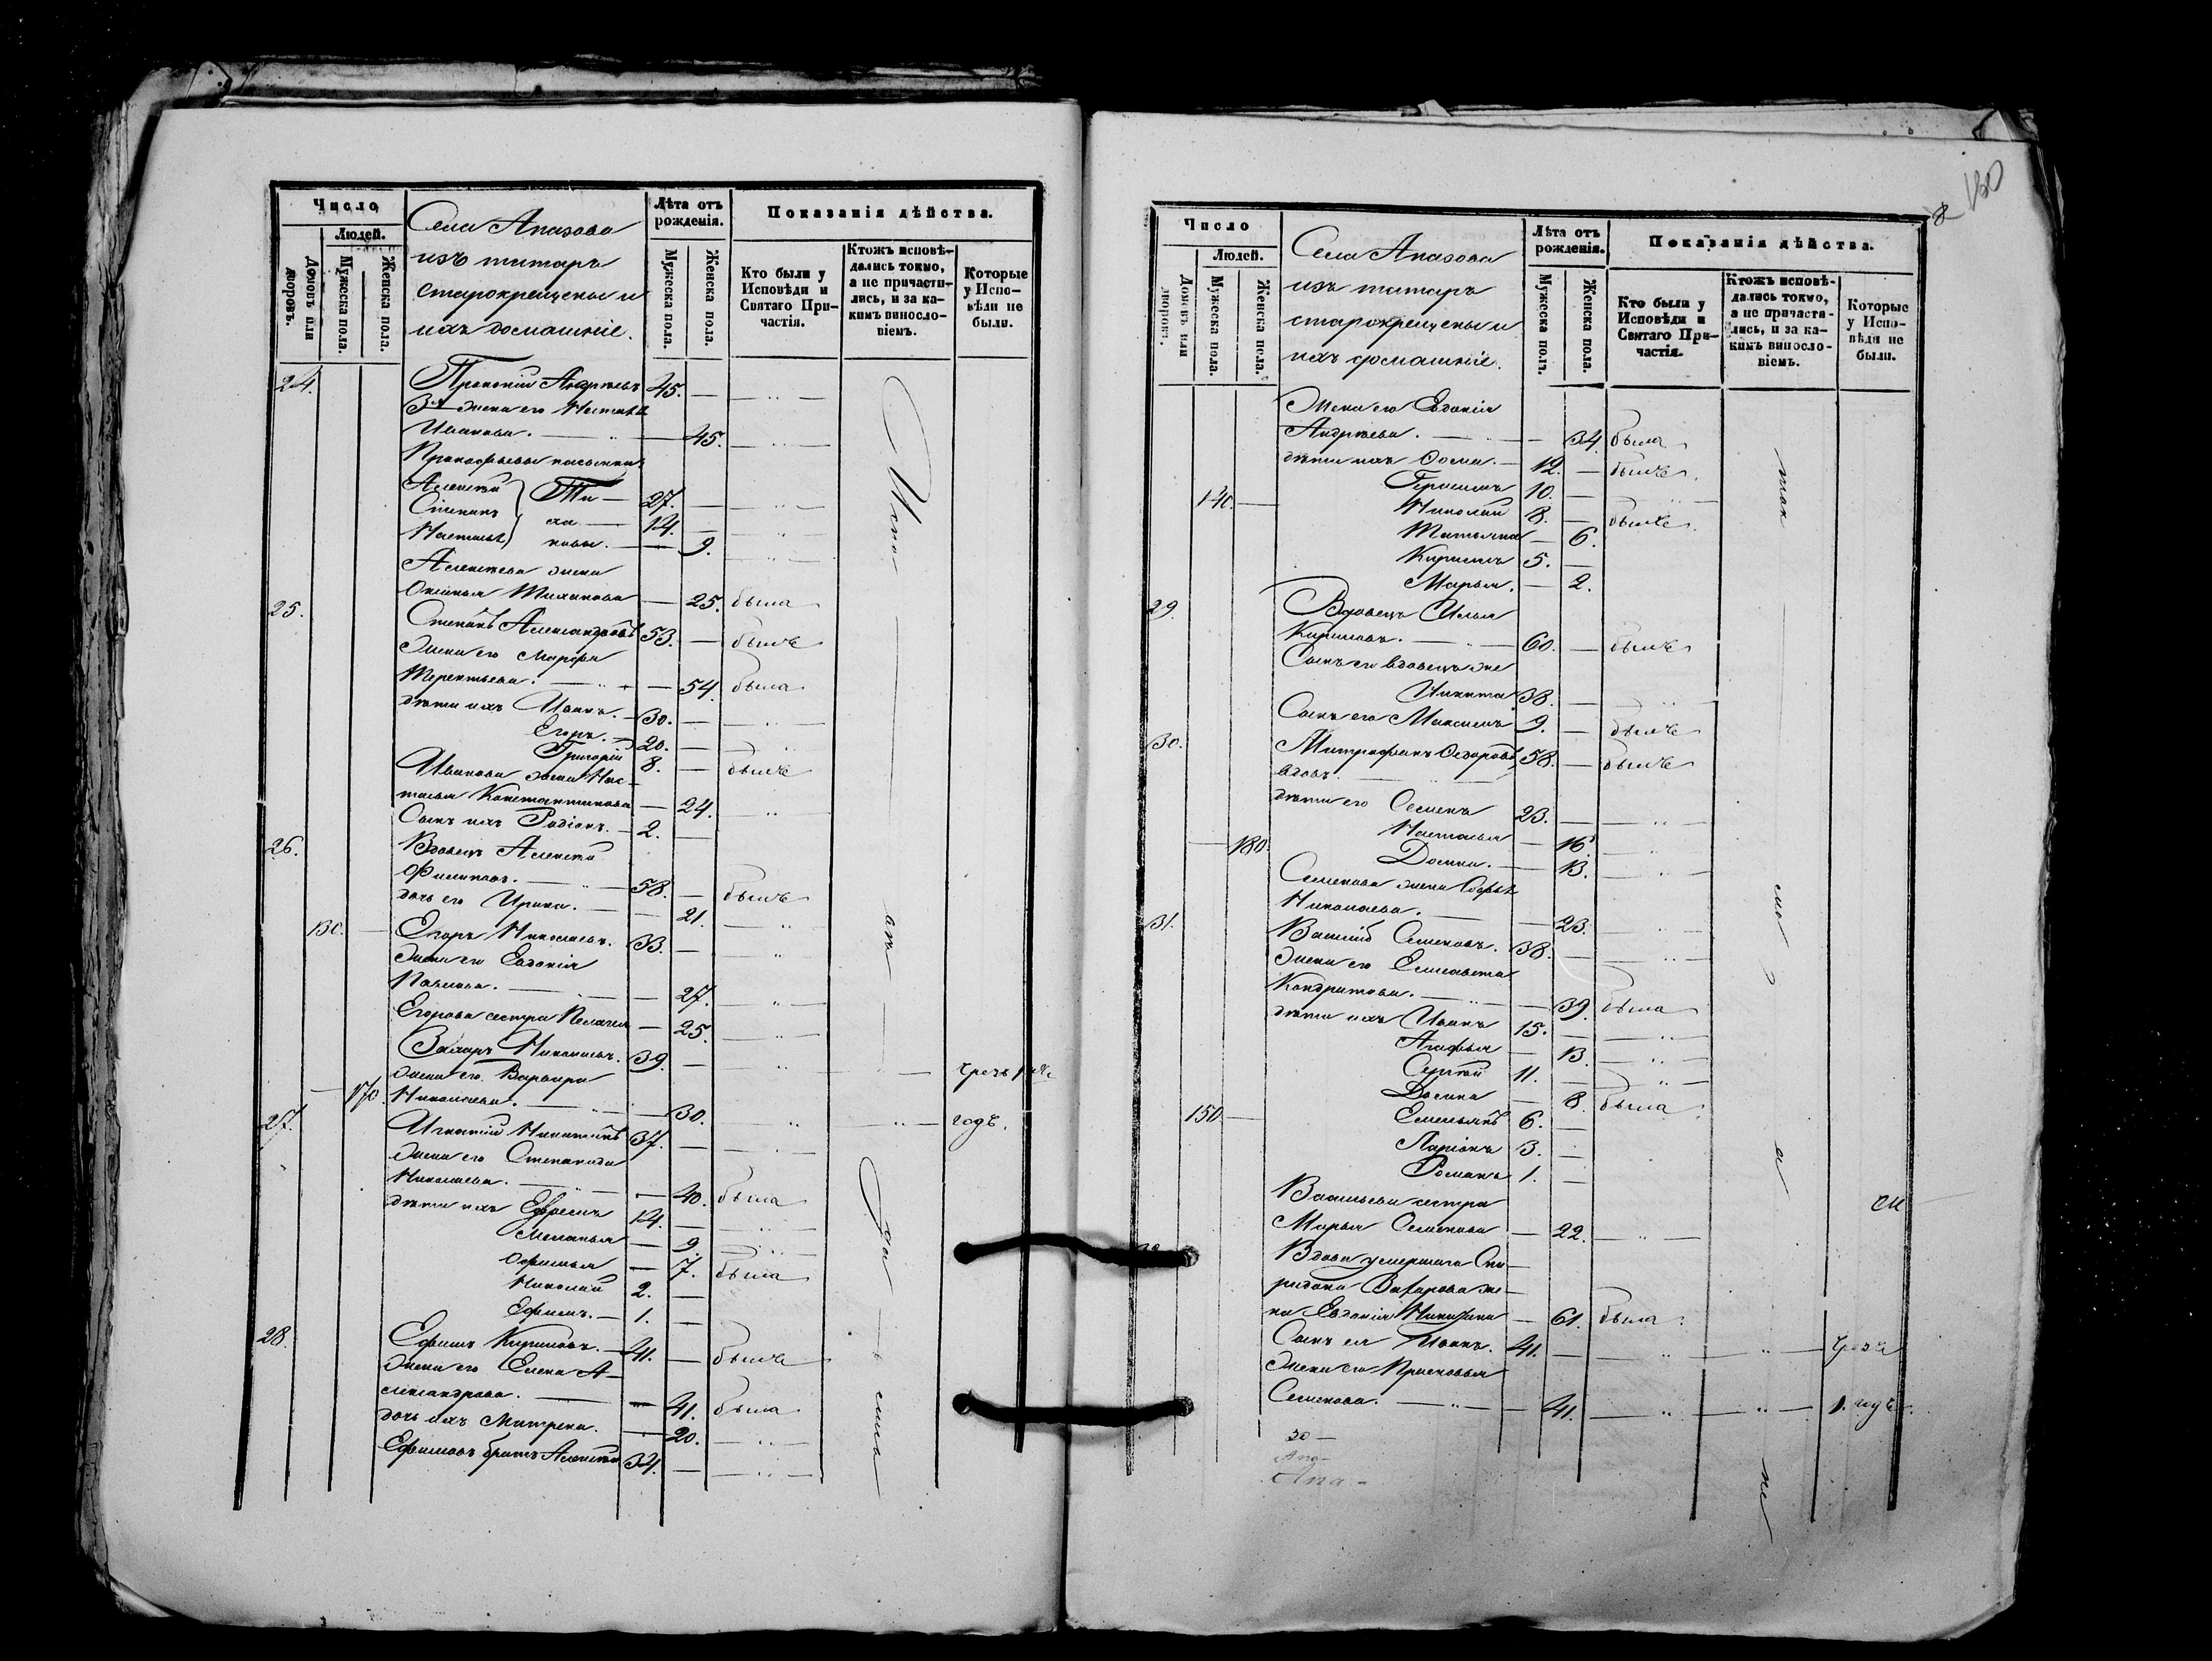 Число
Людей.
Домовъ или дворовъ.
Мужеска пола.
Женска пола.
Села Апазова
изъ татаръ
старокрещены и
ихъ домашніе.
Лѣта отъ рожденія.
Мужеска пола.
Женска пола.
Показанія дѣйства.
Кто были у Исповѣди и Святаго Причастія.
Ктожъ исповѣдались токмо, а не причастились, и за какимъ винословіемъ.
Которые у Исповѣди не были.
24. Прокопій Андреевъ 45. — — „ —
3й жена его Настасья
Иванова. — „ — 45. — „ —
Прокофьевы пасынки
Алексѣй Ти— 27. — — „ —
Степанъ хо— 14. — — „ —
Настасья новы. — 9. — „ —
Алексѣева жена
Ти́хонова — 25. была
25. Степанъ Александровъ 53. — былъ
Жена его Марфа
Терентьева. — „ — 54. была
дѣти ихъ Иванъ. — 30. — — „ —
Егоръ. — 20. — — „
Григорій 8. — былъ
Иванова жена Нас—
тасья Константинова — 24. „
Сынъ ихъ Родіонъ. — 2. —
26. Вдовецъ Алексѣй
Филиповъ. — „ — 58. — былъ
дочь его Ирина. — — 21. — „ —
130. — Егоръ Николаевъ. 33. — „
Жена его Евдокія
Павлова. — — 27. — „ —
Егорова сестра Пелагея — 25. — „ —
Захаръ Николаевъ. 39. — „ „ — чрезъ 1
жена его Варвара
— 170. Николаева. — „ — 30. „ „ — годъ.
27. Игнатій Никитинъ 37. — — „ —
Жена его Степанида
Николаева. — „ — 40. была
дѣти ихъ Ефремъ 14. — — „ —
Меланья — 9. — „ —
Офимья — 7. была
Николай 2. —
Ефимъ. — 1. —
28. Ефимъ Кириловъ. — 41. — былъ
Жена его Елена А—
лександрова. — — 41. была
дочь ихъ Матрена. — 20. — „ —
Ефимовъ братъ Алексѣй 34. — — „ —
130
Число
Людей.
Домовъ или дворовъ.
Мужеска пола.
Женска пола.
Села Апазова
изъ татаръ
старокрещены и
ихъ домашніе.
Лѣта отъ рожденія.
Мужеска пола.
Женска пола.
Показанія дѣйства.
Кто были у Исповѣди и Святаго Причастія.
Ктожъ исповѣдались токмо, а не причастились, и за какимъ винословіемъ.
Которые у Исповѣди не были.
Жена его Евдокія
Андреева. — „ — 34. была
дѣти ихъ Фома. — 12. — былъ.
Герасимъ 10. — „
140. — Николай 8. — былъ.
Татьяна — 6.
Кирилъ 5. —
Марья. — 2.
29. Вдовецъ Илья
Кириловъ. — „ — 60. — былъ
Сынъ его вдовецъ же
Никита 38. — — „ —
Сынъ его Максимъ 9. — былъ
30. Митрофанъ Ѳедоровъ, 58. — былъ
вдовъ. — „ —
дѣти его Семенъ 23. — — „ —
Настасья — 16. — „
— 180. Домна. — — 13. — „ —
Семенова жена Софья
Николаева. — — 23. — „ —
31. Василій Семеновъ. 38. — — „ —
Жена его Елисавета
Кондратова. — „ — 39. была
дѣти ихъ Иванъ 15. — — „ —
Агафья — 13. — „ —
Сергѣй 11. — — „ —
Домна — 8. была
150. — Емельянъ 6. —
Ларіонъ 3. —
Романъ 1. —
Васильева сестра
Марья Семенова — 22. — „ —
Вдова умершаго Спи—
ридона Захарова же—
на Евдокія Никитина — 61. была
Сынъ ея Иванъ. 41. — „ „ — чрезъ
Жена его Прасковья
Семенова. — „ — 41. — „ — „ — 1. годъ.
Апа—